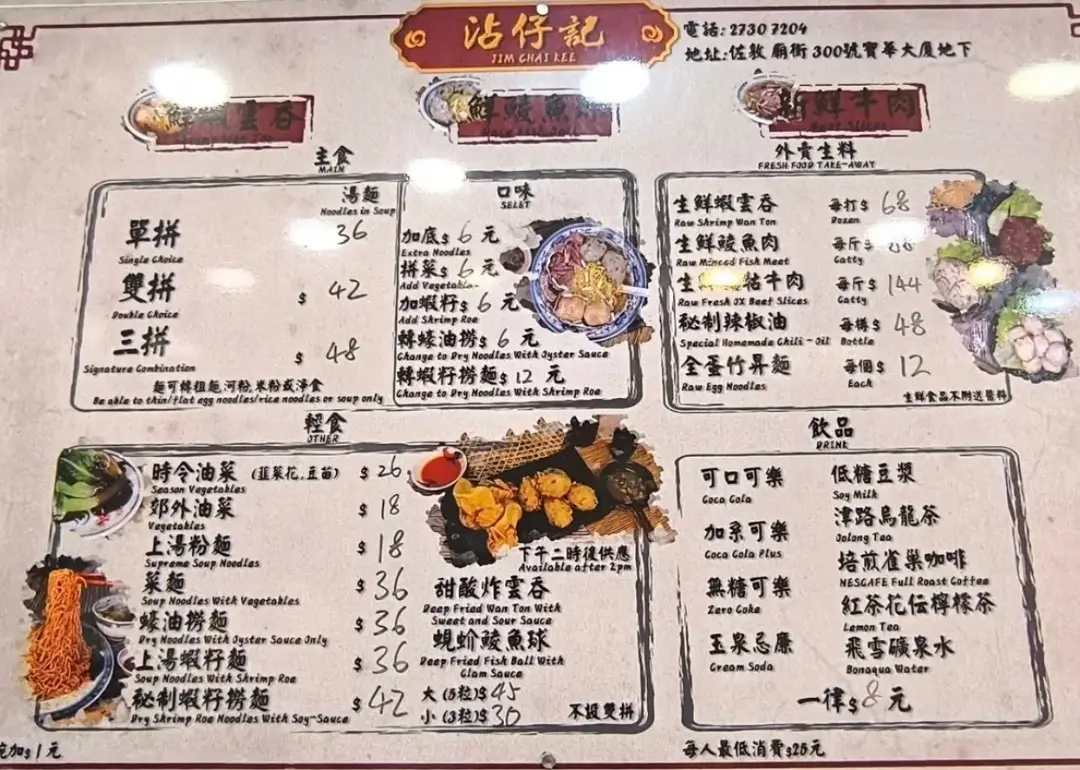 沾仔記
JIM CHAI KEE
電話: 2730 7204
地址: 佐敦 廟街 300號寶華大廈地下
鮮蝦雲吞
鮮鯪魚
新鮮牛肉
主食
MAIN
湯麵
Noodles in Soup
單拼 36
Single Choice
雙拼 $ 42
Double Choice
三拼 $ 48
Signature Combination
麵可轉粗麵,河粉,米粉或淨食
Be able to thin/flat egg noodles/rice noodles or soup only
口味
SELET
加底 $ 6 元
Extra Noodles
拼菜 $ 6 元
Add Vegetables
加蝦籽 $ 6 元
Add Shrimp Roe
轉蠔油撈 $ 6 元
Change to Dry Noodles With Oyster Sauce
轉蝦籽撈麵 $ 12 元
Change to Dry Noodles With Shrimp Roe
外賣生料
FRESH FOOD TAKE-AWAY
生鮮蝦雲吞 每打 $ 68
Raw Shrimp Wan Ton Dozen
生鮮鯪魚肉 每斤 $
Raw Minced Fish Meet Catty
生 牯牛肉 每斤 $ 144
Raw Fresh JX Beef Slices Catty
秘制辣椒油 每樽 $ 48
Special Homemade Chili - Oil Bottle
全蛋竹昇麵 每個 $ 12
Raw Egg Noodles Each
生鮮食品不附送醬料
輕食
OTHER
時令油菜 (韮菜花,豆苗) $ 26
Season Vegetables
郊外油菜 $ 18
Vegetables
上湯粉麵 $ 18
Supreme Soup Noodles
菜麵 $ 36
Soup Noodles With Vegetables
蠔油撈麵 $ 36
Dry Noodles With Oyster Sauce Only
上湯蝦籽麵 $ 36
Soup Noodles With Shrimp Roe
秘制蝦籽撈麵 $ 42
Dry Shrimp Roe Noodles With Soy-Sauce
下午二時後供應
Available after 2pm
甜酸炸雲吞
Deep Fried Wan Ton With
Sweet and Sour Sauce
蜆蚧鯪魚球
Deep Fried Fish Ball With
Clam Sauce
大 (5粒)$ 45
小 (3粒)$ 30 不設雙拼
飲品
DRINK
可口可樂
Coca Cola
加系可樂
Coca Cola Plus
無糖可樂
Zero Coke
玉泉忌廉
Cream Soda
低糖豆漿
Soy Milk
津路烏龍茶
Oolong Tea
焙煎雀巢咖啡
NESCAFE Full Roast Coffee
紅茶花伝檸檬茶
Lemon Tea
飛雪礦泉水
Bonaqua Water
一律 $ 8 元
加$ 1 元
每人最低消費$25元